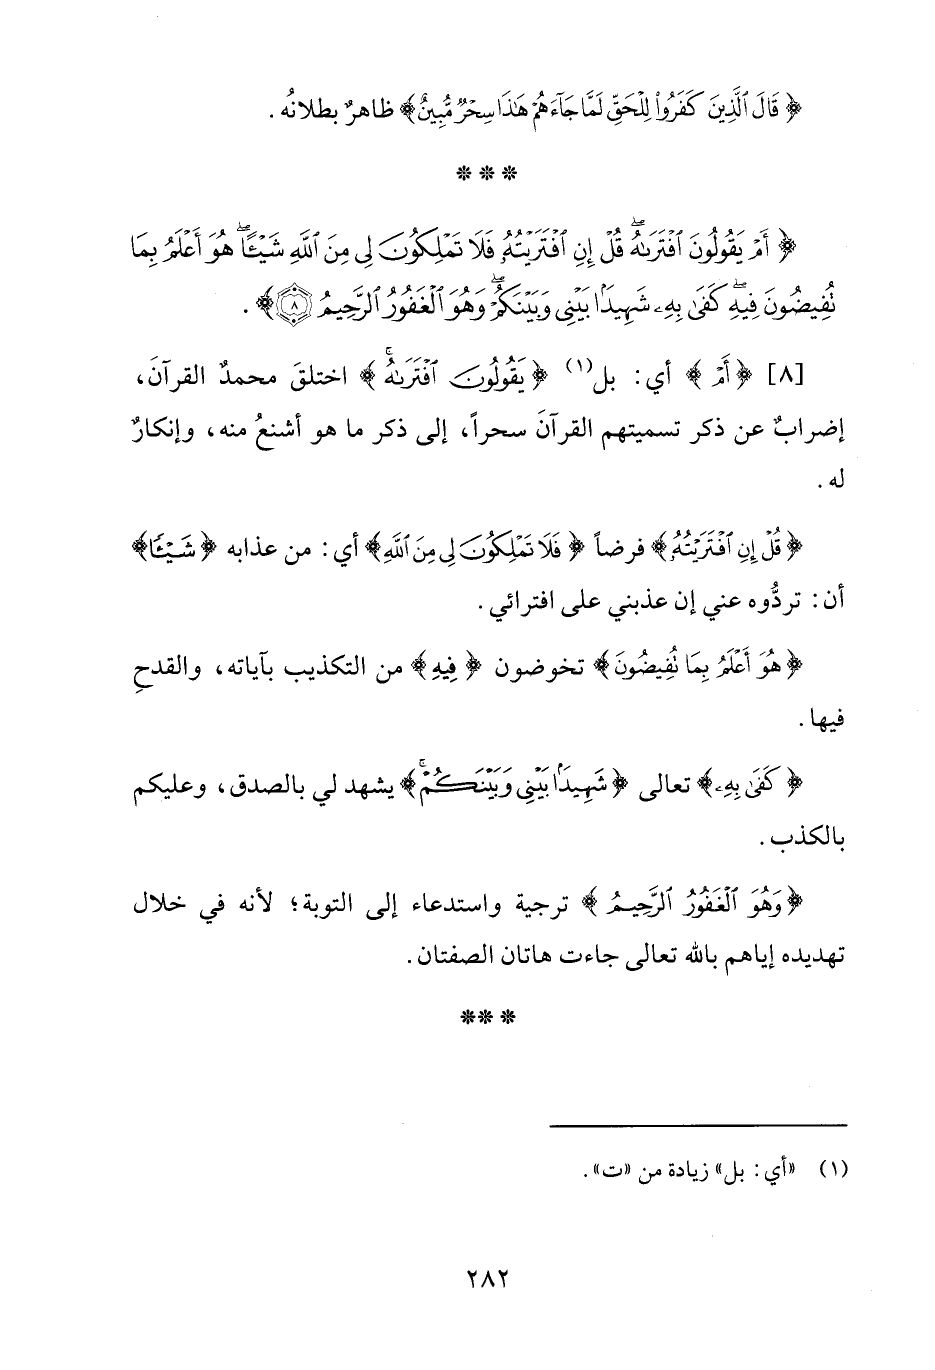 ﴿قَالَ الَّذِينَ كَفَرُوا لِلْحَقِّ لَمَّا جَاءَهُمْ هَٰذَا سِحْرٌ مُّبِينٌ﴾ ظاهرٌ بطلانُه.
***
﴿أَمْ يَقُولُونَ افْتَرَاهُ ۖ قُلْ إِنِ افْتَرَيْتُهُ فَلَا تَمْلِكُونَ لِي مِنَ اللَّهِ شَيْئًا ۖ هُوَ أَعْلَمُ بِمَا
تُفِيضُونَ فِيهِ ۖ كَفَىٰ بِهِ شَهِيدًا بَيْنِي وَبَيْنَكُمْ ۖ وَهُوَ الْغَفُورُ الرَّحِيمُ ٨﴾.
[٨] ﴿أَمْ﴾ أي: بل(١) ﴿يَقُولُونَ افْتَرَاهُ ۚ﴾ اختلقَ محمدٌ القرآنَ،
إضرابٌ عن ذكر تسميتهم القرآنَ سحراً، إلى ذكر ما هو أشنعُ منه، وإنكارٌ
له.
﴿قُلْ إِنِ افْتَرَيْتُهُ﴾ فرضاً ﴿فَلَا تَمْلِكُونَ لِي مِنَ اللَّهِ﴾ أي: من عذابه ﴿شَيْئًا﴾
أن: تردُّوه عني إن عذبني على افترائي.
﴿هُوَ أَعْلَمُ بِمَا تُفِيضُونَ﴾ تخوضون ﴿فِيهِ﴾ من التكذيب بآياته، والقدحِ
فيها.
﴿كَفَىٰ بِهِ﴾ تعالى ﴿شَهِيدًا بَيْنِي وَبَيْنَكُمْ ۚ﴾ يشهد لي بالصدق، وعليكم
بالكذب.
﴿وَهُوَ الْغَفُورُ الرَّحِيمُ﴾ ترجية واستدعاء إلى التوبة؛ لأنه في خلال
تهديده إياهم بالله تعالى جاءت هاتان الصفتان.
***
(١) «أي: بل» زيادة من «ت».
٢٨٢